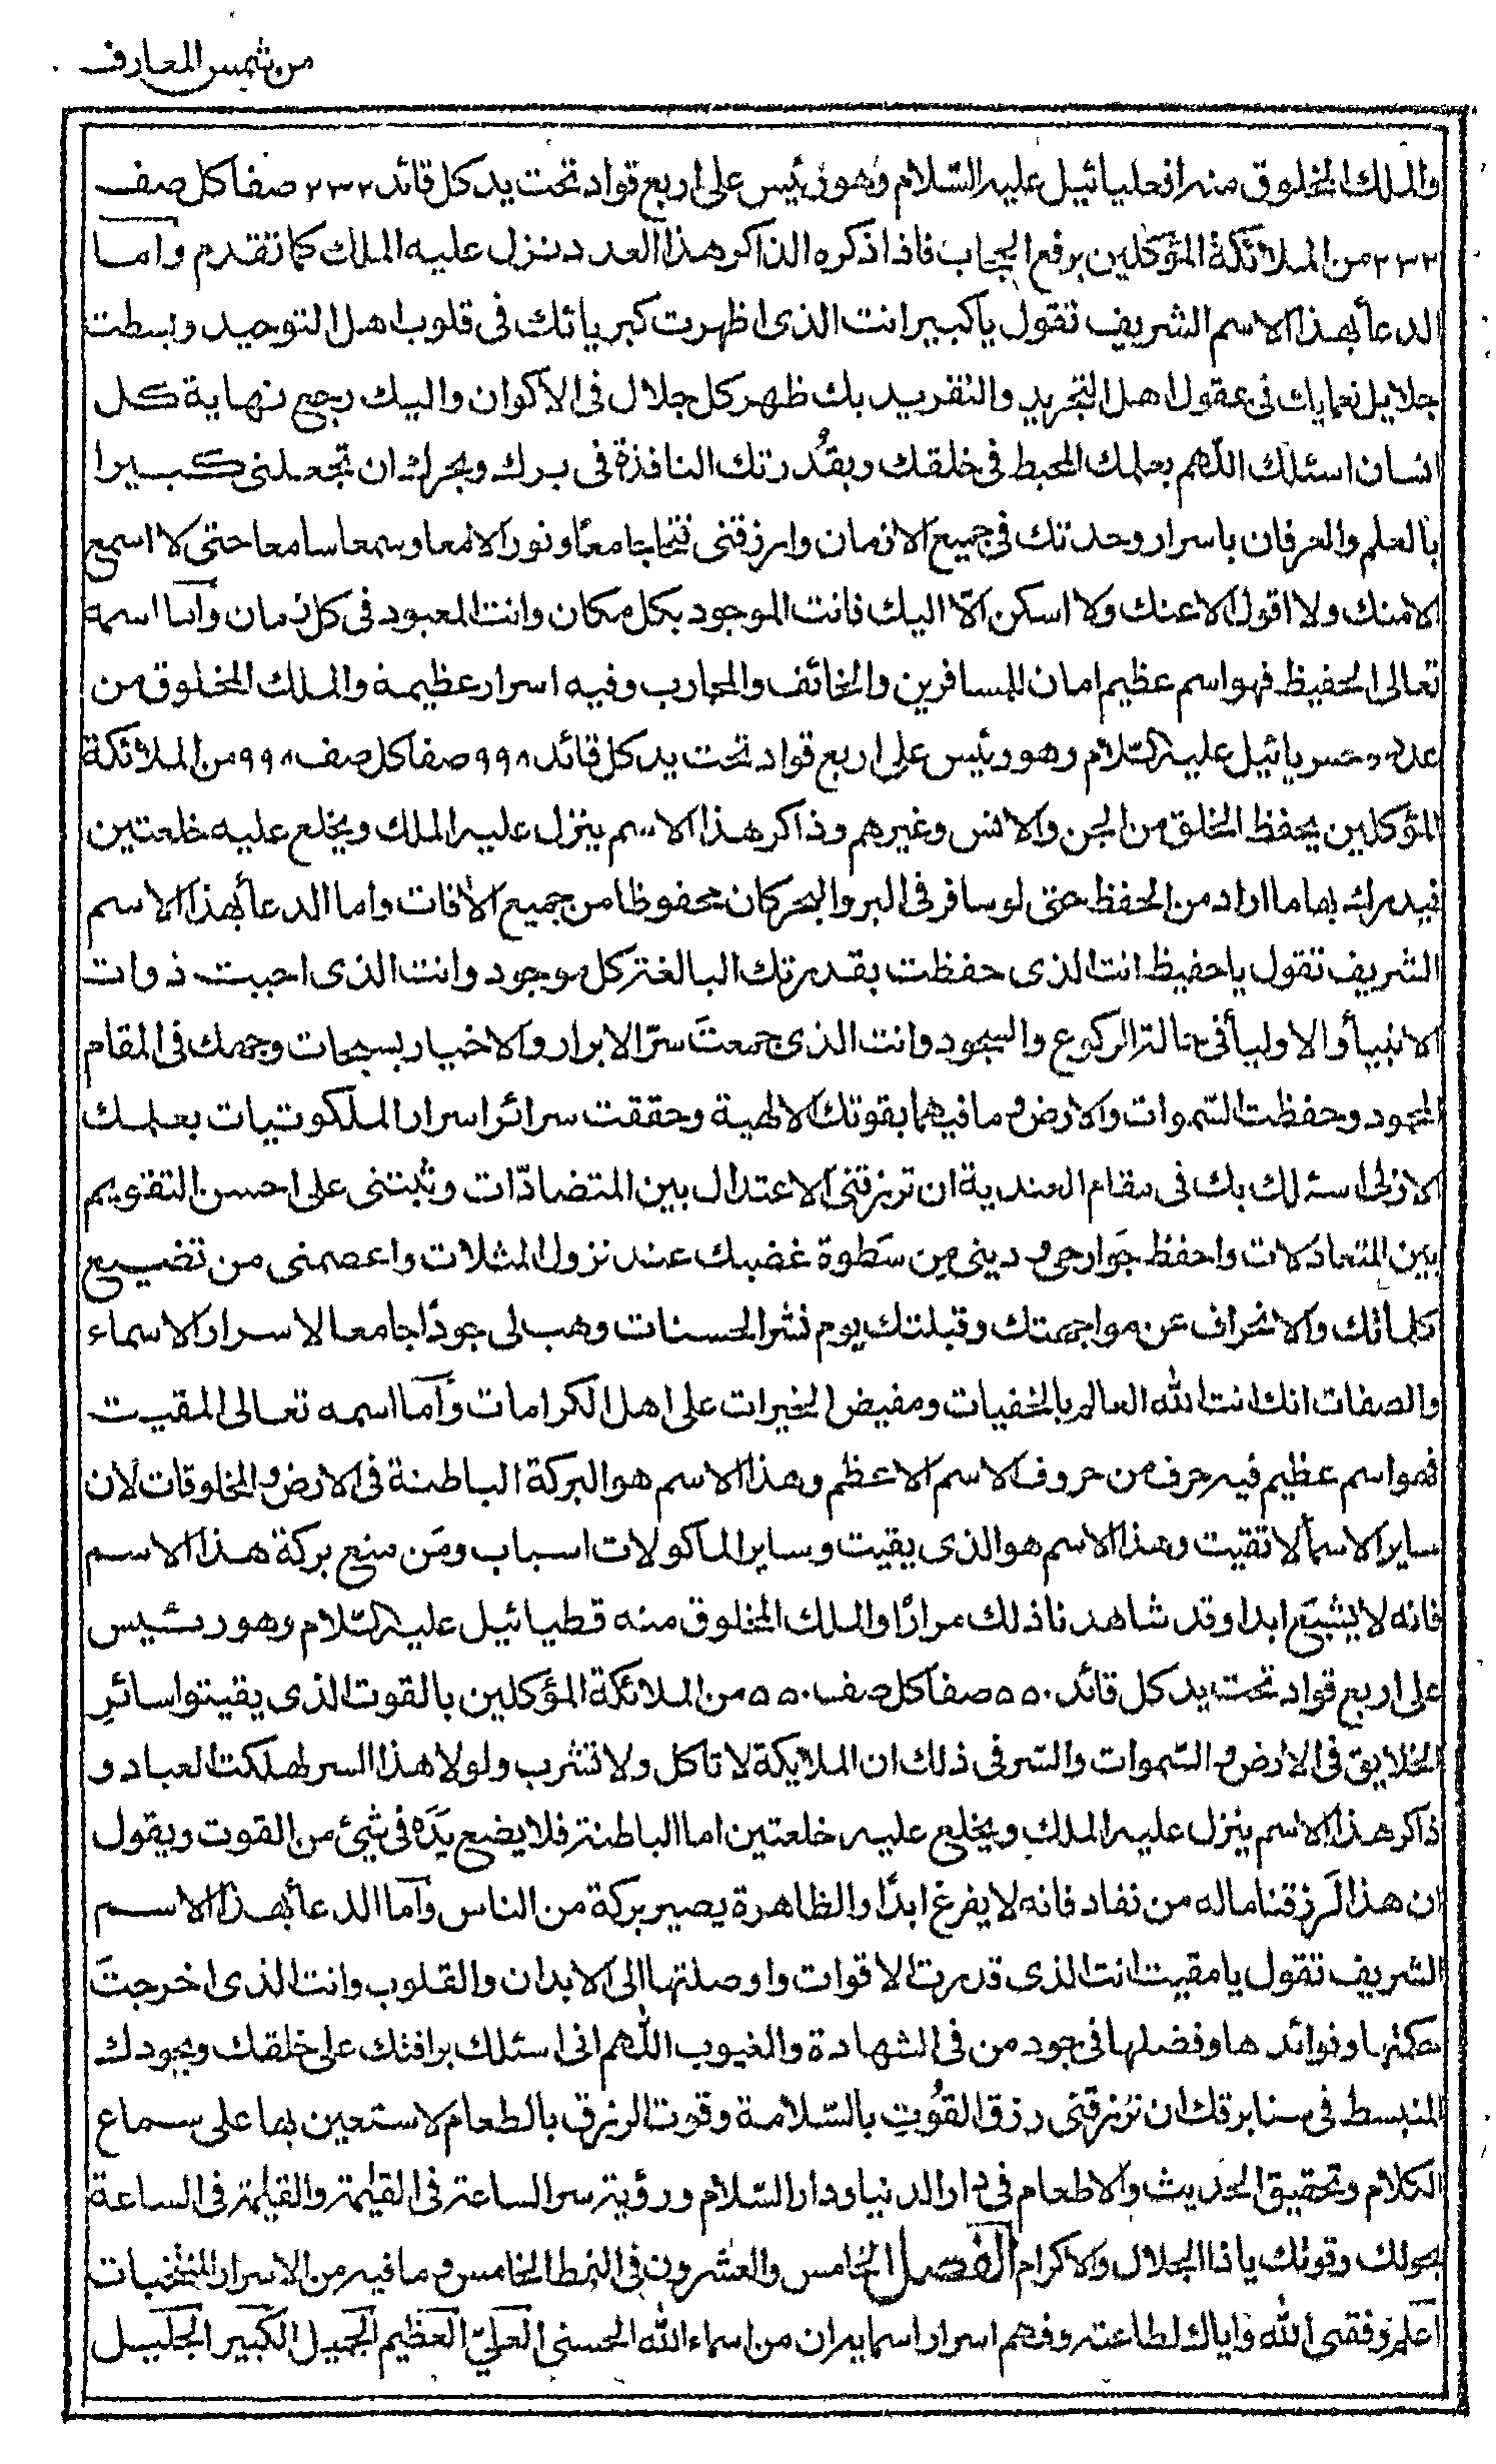 من شمس المعارف
والملك المخلوق منه انحليائيل عليه السّلام وهو رئيس على اربع قواد تحت يد كل قائد ٢٣٢ صفا كل صف
٢٣٢ من الملائكة المؤكلين برفع الحجاب فاذا ذكره الذاكر هذا العدد نزل عليه الملك كما تقدم واما
الدعأ بهذا الاسم الشريف تقول يا كبير انت الذى اظهرت كبريائك فى قلوب اهل التوحيد وبسطت
جلايل نعمايك فى عقول اهل التجريد والتفريد بك ظهر كل جلال فى الاكوان واليك رجع نهاية كل
انسان اسئلك اللّهم بعلمك المحيط فى خلقك وبقُدرتك النافذة فى برك وبحرك ان تجعلنى كبيرا
بالعلم والعرفان باسرار وحدتك فى جميع الازمان وارزقنى جامعًا ونورا لامعا وسمعا سامعا حتى لا اسمع
الا منك ولا اقول الا عنك ولا اسكن الّا اليك فانت الموجود بكل مكان وانت المعبود فى كل زمان وآما اسمه
تعالى الحفيظ فهو اسم عظيم امان للمسافرين والخائف والمحارب وفيه اسرار عظيمة والملك المخلوق من
عدده حسريائيل عليه السّلام وهو رئيس على اربع قواد تحت يد كل قائد ٩٩٨ صفا كل صف ٩٩٨ من الملائكة
المؤكلين بحفظ الخلق من الجن والانس وغيرهم وذاكر هذا الاسم ينزل عليه الملك ويخلع عليه خلعتين
فيدرك بهما ما اراد من الحفظ حتى لو سافر فى البر والبحر كان محفوظا من جميع الافات واما الدعأ بهذا الاسم
الشريف تقول يا حفيظ انت الذى حفظت بقدرتك البالغة كل موجود وانت الذى احببت ذوات
الانبيأ والاوليأ فى حالة الركوع والسجود وانت الذى جمعتَ سرّ الابرار والاخيار بسبحات وجهك فى المقام
المحمود وحفظت السّموات والارض وما فيهما بقوتك الالهية وحققت سرائر اسرار الملكوتيات بعلمك
الازلى اسئلك بك فى مقام العندية ان ترزقنى الاعتدال بين المتضادّات وثبتنى على احسن التقويم
بين المتعادلات واحفظ جَوارحى ودينى مِن سَطوة غضبك عند نزول المثلات واعصمنى من تضييع
كلماتك والانحراف عن مواجهتك وقبلتك يوم نشر الحسنات وهب لى جودًا جامعا لاسرار الاسماء
والصفات انك انت اللّه العالم بالخفيات ومفيض الخيرات على اهل الكرامات وآما اسمه تعالى المقيت
فهو اسم عظيم فيه حرف من حروف الاسم الاعظم وهذا الاسم هو البركة الباطنة فى الارض والمخلوقات لان
ساير الاسمأ لا تقيت وهذا الاسم هو الذى يقيت وساير الماكولات اسباب ومَن منع بركة هذا الاسم
فانه لا يشبَع ابدا وقد شاهدنا ذلك مرارًا والملك المخلوق منه قطيائيل عليه السّلام وهو رئيس
على اربع قواد تحت يد كل قائد ٥٥٠ صفآ كل صف ٥٥٠ من الملائكة المؤكلين بالقوت الذى يقيتوا سائر
الخلايق فى الارض والسّموات والسّر فى ذلك ان الملايكة لا تاكل ولا تشرب ولولا هذا السر لهلكت العباد و
ذاكر هذا الاسم ينزل عليه الملك ويخلع عليه خلعتين اما الباطنة فلا يضع يدَه فى شيئ من القوت ويقول
ان هذا لَرزقنا ماله من نفاد فانه لا يفرغ ابدًا والظاهرة يصير بركة من الناس وآما الدعأ بهذا الاسم
الشريف تقول يا مقيت انت الذى قدرت الاقوات واوصلتها الى الابدان والقلوب وانت الذى اخرجتَ
وفوائدها وفضلها فى جود من فى الشهادة والغيوب اللّهم انى اسئلك برافتك على خلقك وبجودك
المنبسط فى ان ترزقنى رزق القُوتِ بالسّلامة وقوت الرزق بالطعام لاستعين بها على سماع
الكلام وتحقيق الحديث والاطعام فى دار الدنيا ودار السّلام ورؤية سر الساعة فى القيٰمة والقيٰمة فى الساعة
بحولك وقوتك يا ذا الجلال والاكرام الفصل الخامس والعشرون فى النمط الخامس وما فيه من الاسرار المنتخبات
آعلم وفقنى اللّه واياك لطاعته وفهم اسرار اسمايه ان من اسماء اللّه الحسنى العلىّ العظيم الجميل الكبير الجليل